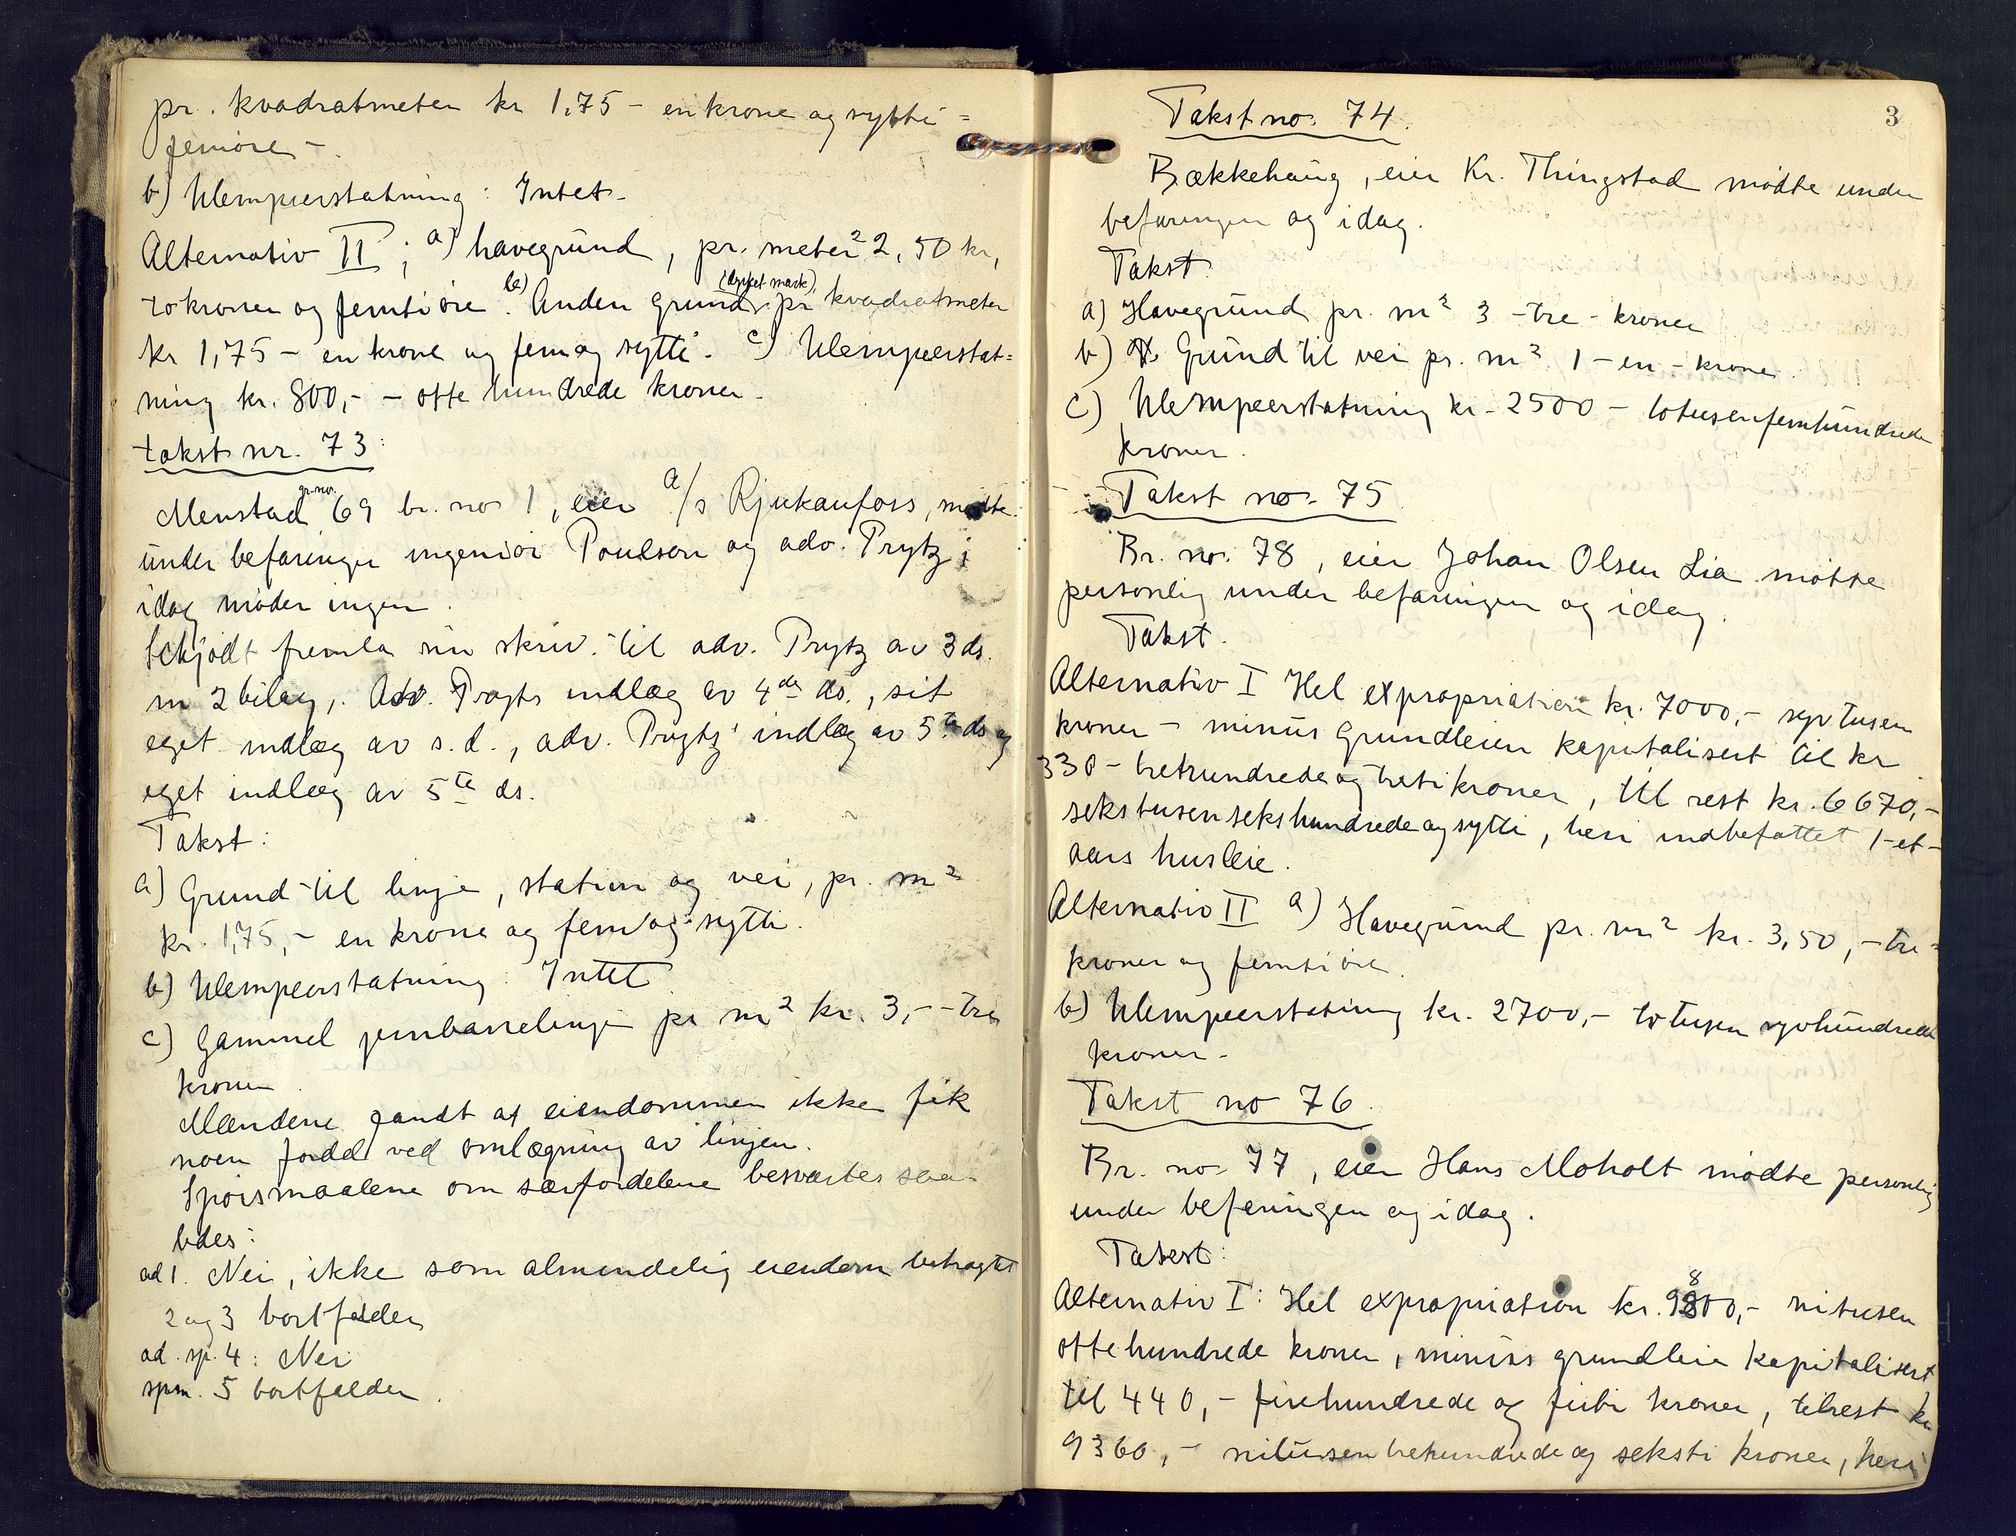 pr. kvadratmeter kr 1,75 - en krone og sytti=
femöre -.
b) Ulempeerstatning: Intet.
Alternativ II; a) havegrund, pr. meter² 2,50 kr,
to kroner og femti öre. b) Anden grund (dyrket mark) pr kvadratmeter
kr 1,75 - en krone og femog sytti. c) Ulempeerstat=
ning kr. 800,- - otte hundrede kroner.
takst nr. 73:
Menstad gr. no. 69 br. no 1, eier A/s Rjukanfoss, mötte
under befaringen ingeniör Poulson og adv. Prytz;
idag möder ingen.
fremla sin skriv. til adv. Prytz av 3 ds.
m 2 bilag, Adv. Prytz indlæg av 4de ds., sit
eget indlæg av s.d., adv. Prytz' indlæg av 5te ds og
eget indlæg av 5te ds.
Takst:
a) Grund til linje, station og vei, pr. m²
kr. 1,75,- en krone og femogsytti.
b) Ulempeerstatning: Intet
c) Gammel jernbanelinje pr m² kr. 3,- - tre
kroner.
Mændene fandt at eiendommen ikke fik
noen fordel ved omlægning av linjen.
Spörsmaalene om særfordelene besvartes saa=
ledes:
ad 1. Nei, ikke som almindelig eiendom betragtet
2 og 3 bortfalder
ad. sp. 4: Nei
spm. 5 bortfalder.
3
Takst no. 74.
Bækkehaug, eier Kr. Thingstad mödte under
befaringen og idag.
Takst:
a) Havegrund pr. m² 3 - tre - kroner
b) Grund til vei pr. m² 1 - en - krone.
c) Ulempeerstatning kr. 2500 - totusenfemhundrede
kroner.
Takst no. 75
Br. no. 78, eier Johan Olsen Lia mötte
personlig under befaringen og idag.
Takst.
Alternativ I Hel expropriation kr. 7000,- syv tusen
kroner - minus Grundleien kapitalisert til kr
330 - trehundrede og tretikroner, til rest kr. 6670,-
sekstusensekshundredeogsytti, heri indbefattet 1 - et -
aars husleie.
Alternativ II a) Havegrund pr. m² kr. 3,50,- tre=
kroner og femti öre.
b) Ulempeerstatning kr. 2700,- to tusen syvhundrede
kroner.
Takst no 76.
Br. no 77, eier Hans Moholt mödte personlig
under befaringen og idag.
Takst:
Alternativ I: Hel expropriation kr. 9800,- nitusen
ottehundrede kroner, minus grundleie kapitalisert
til 440,- firehundrede og firti kroner, tilrest kr
9360,- nitusen trehundrede og seksti kroner, heri